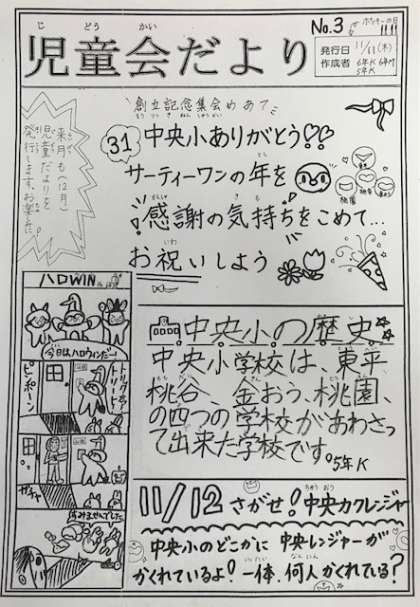 じ どう かい
児童会だより
No.3
ポッキーの日
発行日 11/11(木)
作成者 6年K 6年M
5年K
来月も(12月)
児童会だよりを
発行します。お楽しみに
創立記念集会めあて
そうりつきねんしゅうかい
31 中央小ありがとう!?
サーティーワンの年を
感謝の気持ちをこめて…
お祝いしよう
ハロWIN
今日はハロウィンだー!
トリックアトリート!
ピンポーン
ガチャ
すみませんでした
中央小の歴史
中央小学校は、東平
桃谷、金おう、桃園、
の四つの学校があわさっ
て出来た学校です。5年K
11/12 さがせ!中央カクレンジャー
中央小のどこかに 中央レンジャーが
かくれているよ!一体、何人かくれている?